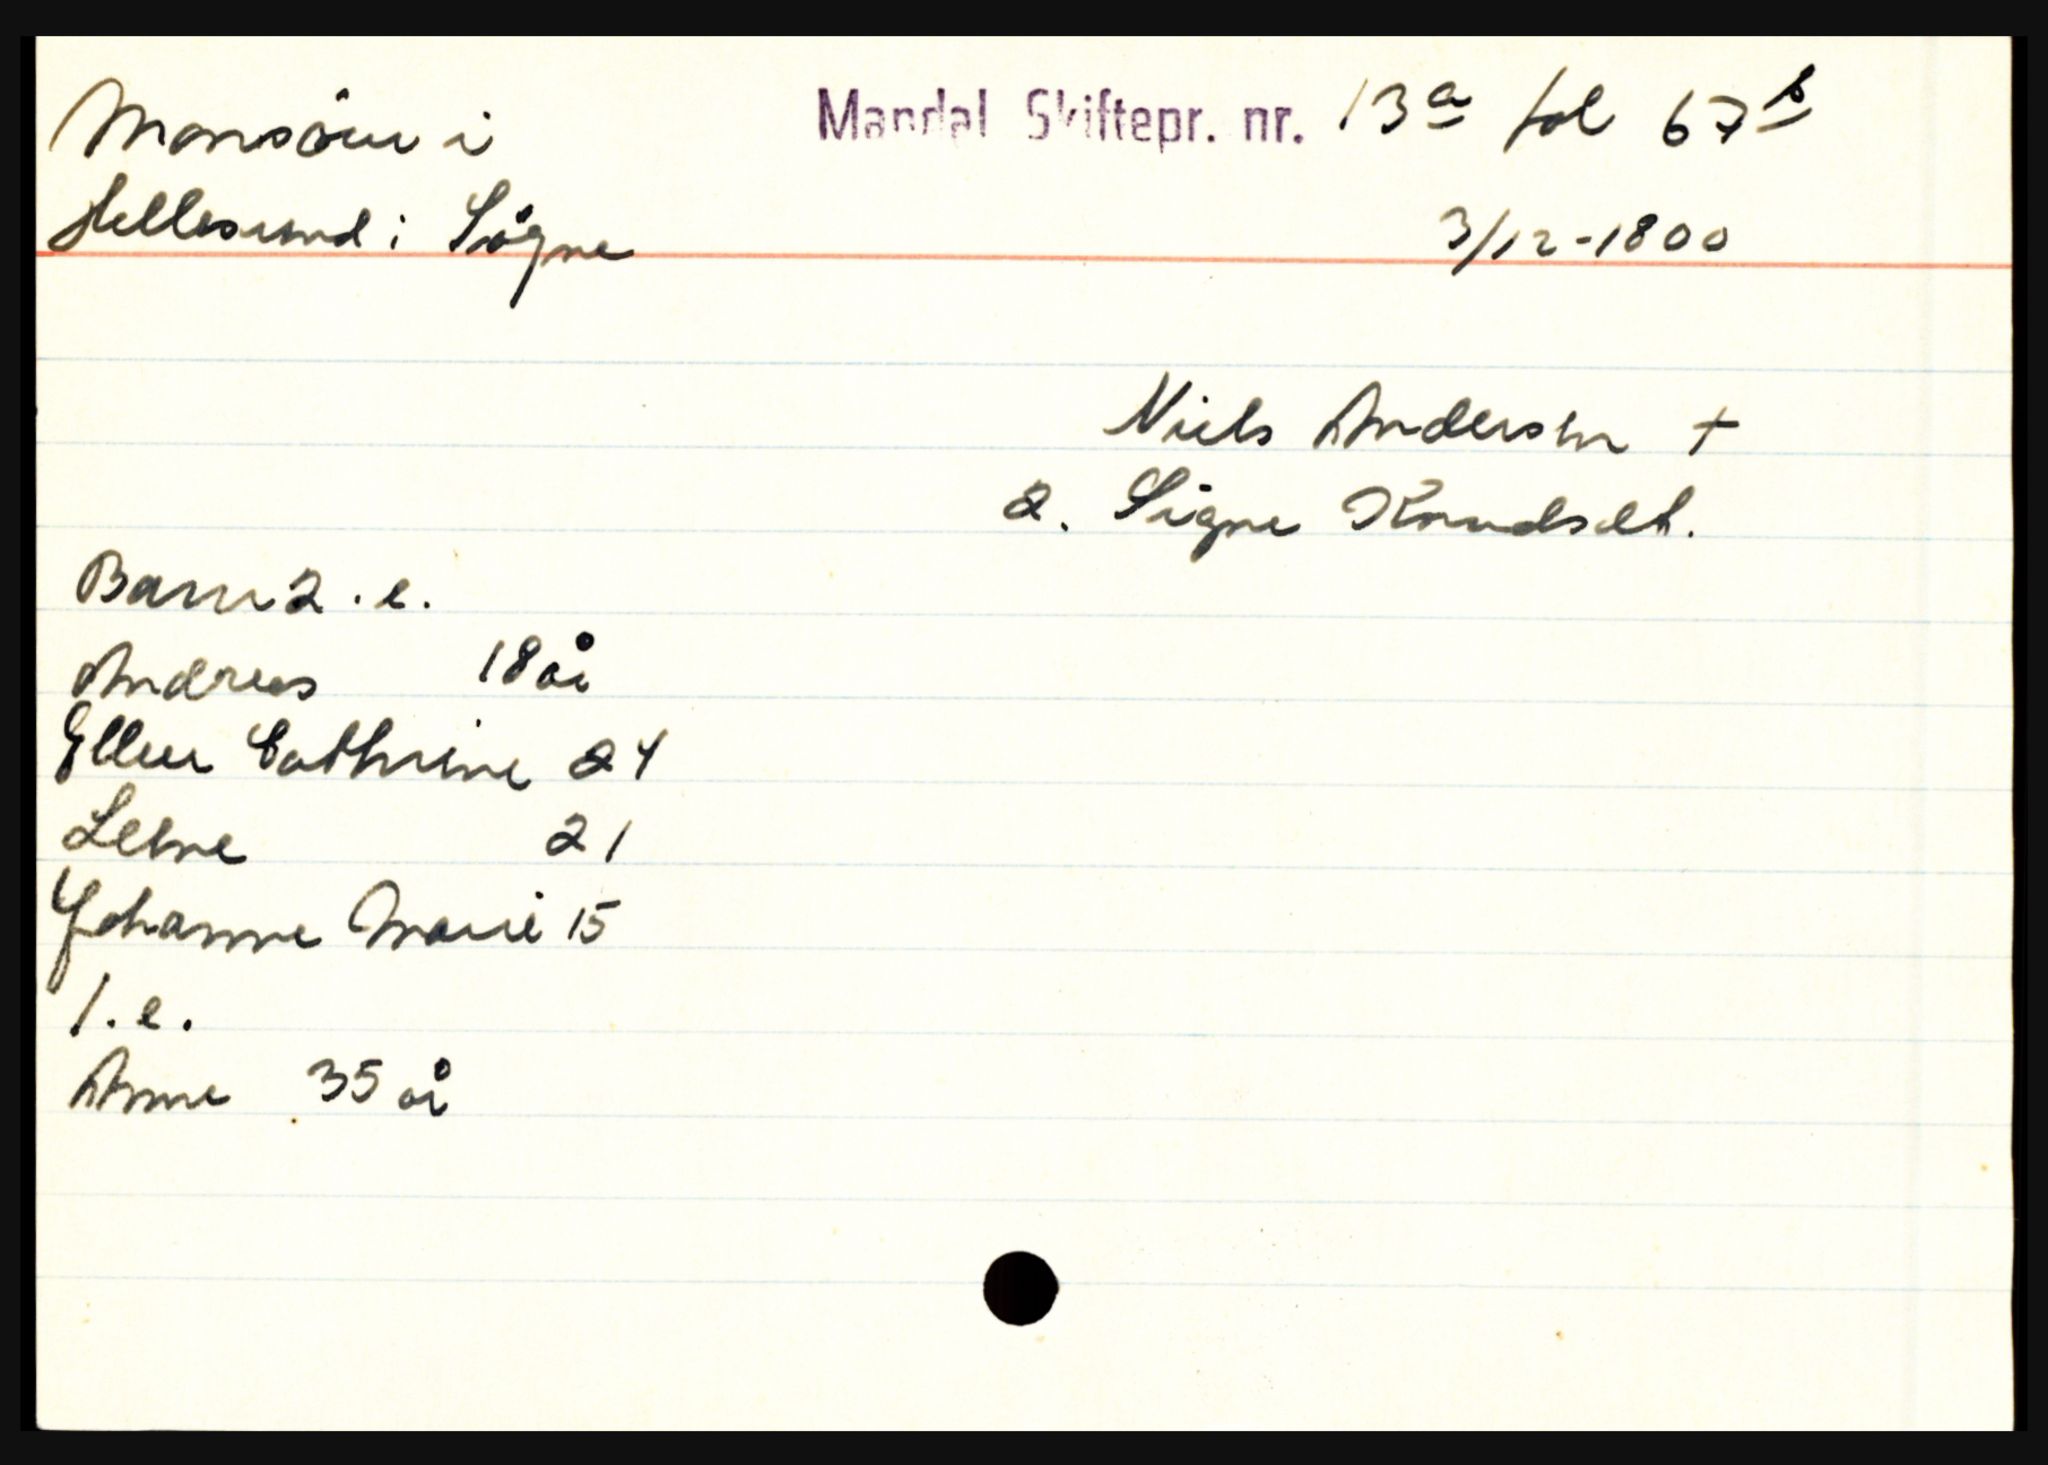 Monsöen i
Hellesund i Søgne
Mandal Skiftepr. nr. 13a fol 67b
3/12-1800
Niels Andersen +
2. Signe Knudsdt.
Barn 2. e.
Andreas 18 år
Ellen Cathrine 24
Lene 21
Johanne Marie 15
1. e.
Anne 35 år